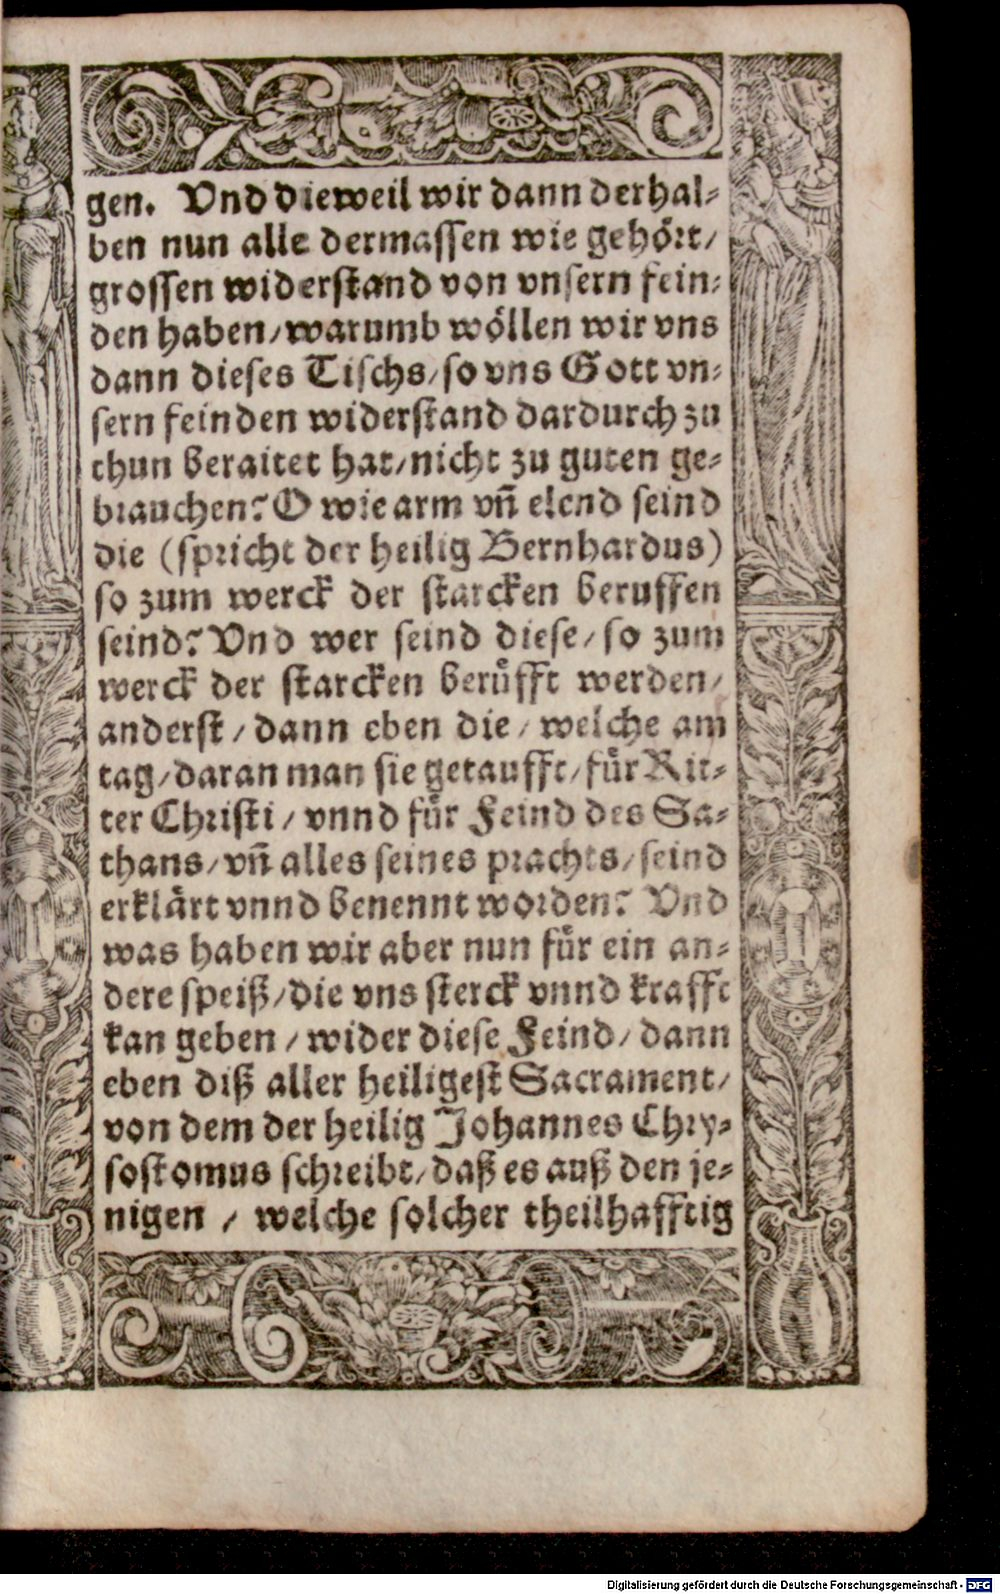 gen. Vnd dieweil wir dann derhal-
ben nun alle dermassen wie gehört/
grossen widerstand von vnsern fein-
den haben/warumb wöllen wir vns
dann dieses Tischs/so vns Gott vn-
sern feinden widerstand dardurch zu
thun beraitet hat/nicht zu guten ge-
brauchen? O wie arm vñ elend seind
die (spricht der heilig Bernhardus)
so zum werck der starcken beruffen
seind? Vnd wer seind diese/so zum
werck der starcken berůfft werden/
anderst/dann eben die/welche am
tag/daran man sie getaufft/für Rit-
ter Christi/vnnd für Feind des Sa-
thans/vñ alles seines prachts/seind
erklärt vnnd benennt worden? Vnd
was haben wir aber nun für ein an-
dere speiß/die vns sterck vnnd krafft
kan geben/wider diese Feind/dann
eben diß aller heiligest Sacrament/
von dem der heilig Johannes Chry-
sostomus schreibt/daß es auß den je-
nigen/welche solcher theilhafftig
Digitalisierung gefördert durch die Deutsche Forschungsgemeinschaft - DFG